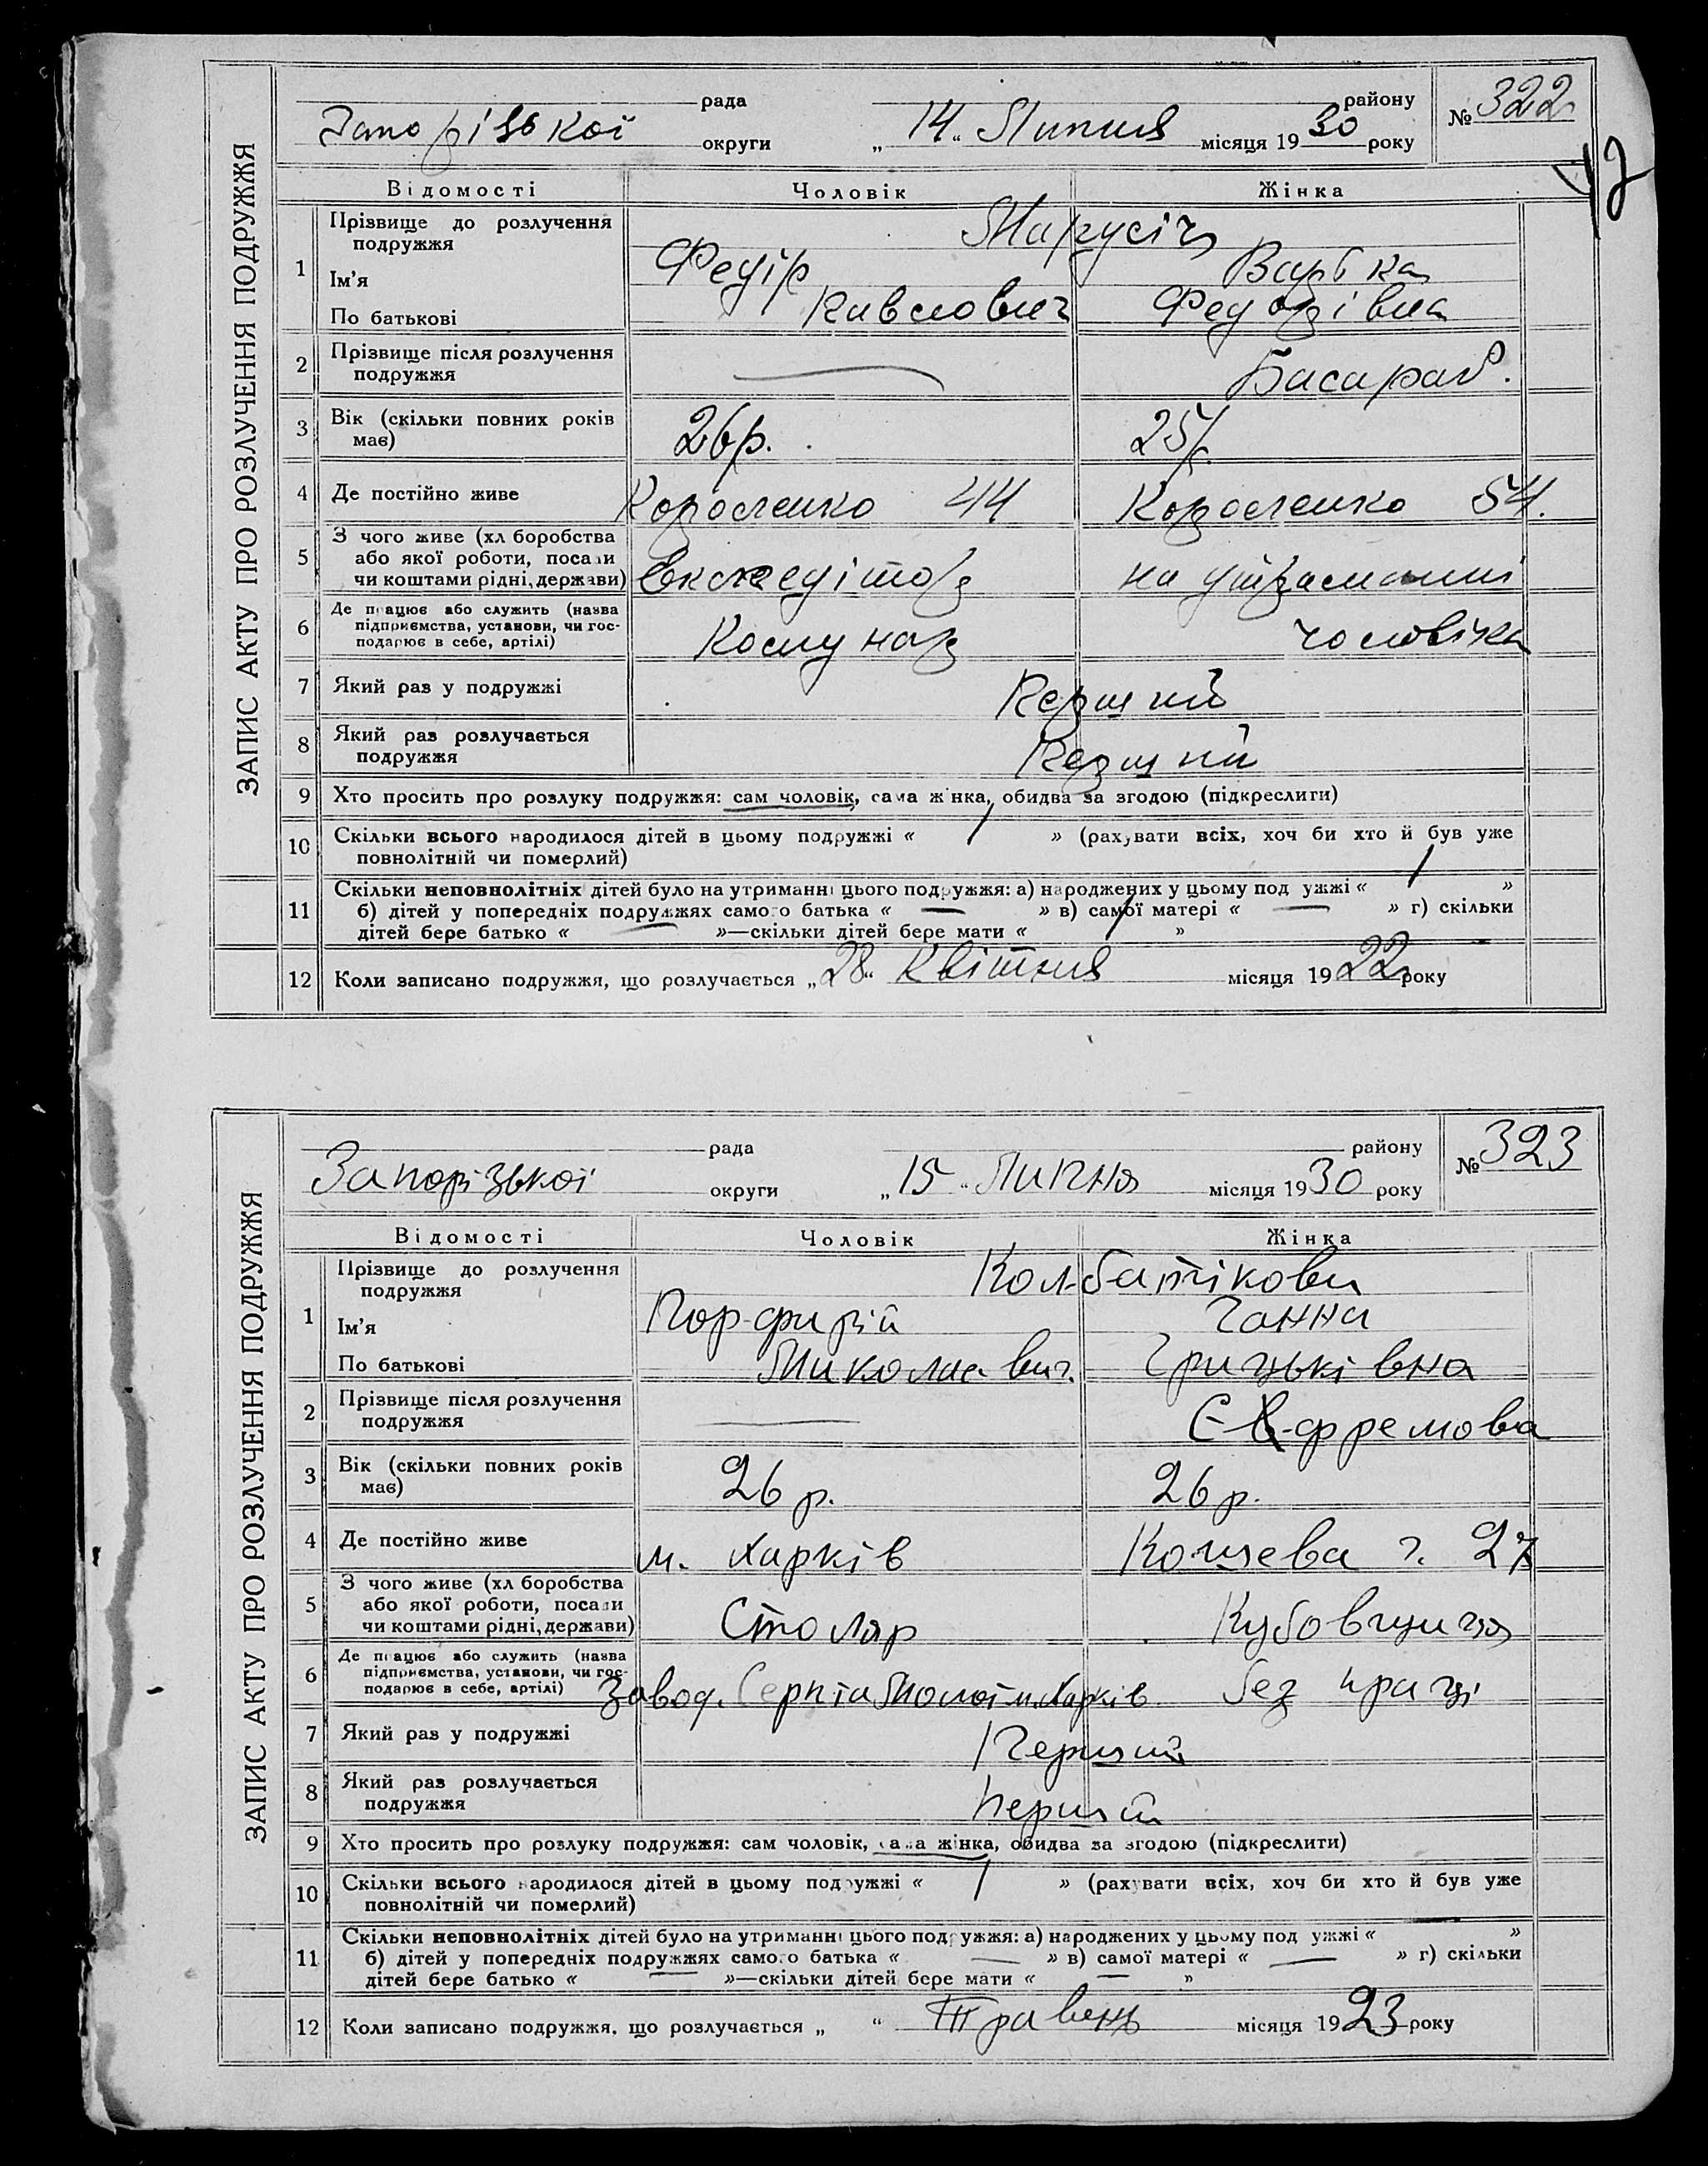 ЗАПИС АКТУ ПРО РОЗЛУЧЕННЯ ПОДРУЖЖЯ
рада району № 322
Запорізької округи „14“ Липня місяця 1930 року
Відомості Чоловік Жінка
1 Прізвище до розлучення подружжя Марусіч
Ім’я Федір Варька
По батькові Павлович Федорівна
2 Прізвище після розлучення подружжя — Басараб.
3 Вік (скільки повних років має) 26 р. 25 р.
4 Де постійно живе Короленко 44 Короленко 54.
5 З чого живе (хл боробства або якої роботи, посади чи коштами рідні, держави) Експедітор на утріманні
6 Де працює або служить (назва підприємства, установи, чи господарює в себе, артілі) Комунар чоловіка
7 Який раз у подружжі Перший
8 Який раз розлучається подружжя Перший
9 Хто просить про розлуку подружжя: сам чоловік, сама жінка, обидва за згодою (підкреслити)
10 Скільки всього народилося дітей в цьому подружжі « 1 » (рахувати всіх, хоч би хто й був уже
повнолітній чи померлий)
11 Скільки неповнолітніх дітей було на утриманні цього подружжя: а) народжених у цьому подружжі « 1 »
б) дітей у попередніх подружжях самого батька « — » в) самої матері « — » г) скільки
дітей бере батько « — »—скільки дітей бере мати « 1 »
12 Коли записано подружжя, що розлучається „28“ Квітня місяця 1922 року
ЗАПИС АКТУ ПРО РОЗЛУЧЕННЯ ПОДРУЖЖЯ
рада району № 323
Запорізької округи „15“ Липня місяця 1930 року
Відомості Чоловік Жінка
1 Прізвище до розлучення подружжя Колбатікови
Ім’я Порфирій Ганна
По батькові Миколаєвич. Грицьківна
2 Прізвище після розлучення подружжя — Єфремова
3 Вік (скільки повних років має) 26 р. 26 р.
4 Де постійно живе м. Харків 27
5 З чого живе (хл боробства або якої роботи, посади чи коштами рідні, держави) Столяр Кубовщиця
6 Де працює або служить (назва підприємства, установи, чи господарює в себе, артілі) Завод. Серп та Молот м. Харків без праці
7 Який раз у подружжі Перший
8 Який раз розлучається подружжя Перший
9 Хто просить про розлуку подружжя: сам чоловік, сама жінка, обидва за згодою (підкреслити)
10 Скільки всього народилося дітей в цьому подружжі « 1 » (рахувати всіх, хоч би хто й був уже
повнолітній чи померлий)
11 Скільки неповнолітніх дітей було на утриманні цього подружжя: а) народжених у цьому подружжі « — »
б) дітей у попередніх подружжях самого батька « — » в) самої матері « — » г) скільки
дітей бере батько « — »—скільки дітей бере мати « — »
12 Коли записано подружжя, що розлучається „ “ Травень місяця 1923 року